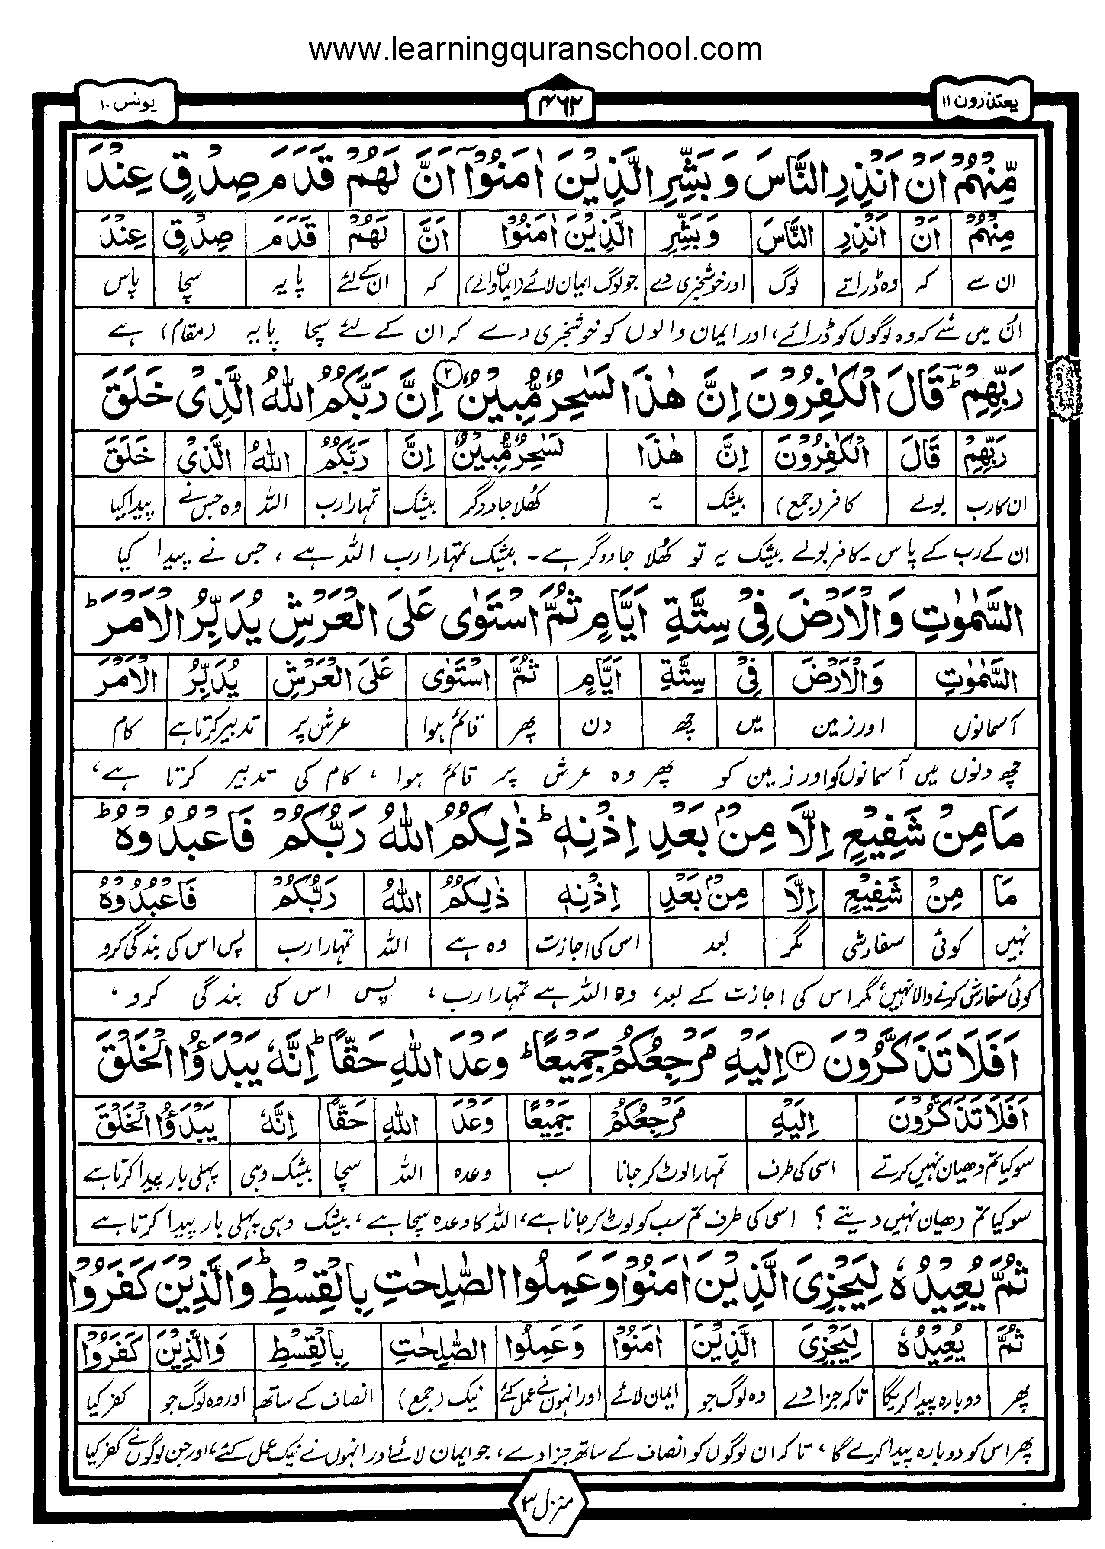 www.learningquranschool.com
یعتذرون ۱۱
۴۶۲
یونس ۱۰
مِّنْهُمْ اَنْ اَنْذِرِ النَّاسَ وَ بَشِّرِ الَّذِیْنَ اٰمَنُوْۤا اَنَّ لَهُمْ قَدَمَ صِدْقٍ عِنْدَ
مِنْهُمْ اَنْ اَنْذِرِ النَّاسَ وَبَشِّرِ الَّذِیْنَ اٰمَنُوْا اَنَّ لَهُمْ قَدَمَ صِدْقٍ عِنْدَ
ان سے کہ وہ ڈراتے لوگ اور خوشخبری دے جو لوگ ایمان لائے (ایمان والے) کہ ان کے لئے پایہ سچا پاس
ان میں سے کہ وہ لوگوں کو ڈرائے، اور ایمان والوں کو خوشخبری دے کہ ان کے لئے سچا پایہ (مقام) ہے
رَبِّهِمْ ؕ قَالَ الْكٰفِرُوْنَ اِنَّ هٰذَا لَسٰحِرٌ مُّبِیْنٌ ۝۲ اِنَّ رَبَّكُمُ اللّٰهُ الَّذِیْ خَلَقَ
رَبِّهِمْ قَالَ الْكٰفِرُوْنَ اِنَّ هٰذَا لَسٰحِرٌ مُّبِیْنٌ اِنَّ رَبَّكُمُ اللّٰهُ الَّذِیْ خَلَقَ
ان کا رب بولے کافر (جمع) بیشک یہ کھلا جادوگر بیشک تمہارا رب اللہ وہ جس نے پیدا کیا
ان کے رب کے پاس ۔ کافر بولے بیشک یہ تو کھلا جادوگر ہے ۔ بیشک تمہارا رب اللہ ہے ، جس نے پیدا کیا
السَّمٰوٰتِ وَالْاَرْضَ فِیْ سِتَّةِ اَیَّامٍ ثُمَّ اسْتَوٰی عَلَی الْعَرْشِ یُدَبِّرُ الْاَمْرَ ؕ
السَّمٰوٰتِ وَالْاَرْضَ فِیْ سِتَّةِ اَیَّامٍ ثُمَّ اسْتَوٰی عَلَی الْعَرْشِ یُدَبِّرُ الْاَمْرَ
آسمانوں اور زمین میں چھ دن پھر قائم ہوا عرش پر تدبیر کرتا ہے کام
چھ دنوں میں آسمانوں کو اور زمین کو پھر وہ عرش پر قائم ہوا ، کام کی تدبیر کرتا ہے ،
مَا مِنْ شَفِیْعٍ اِلَّا مِنْۢ بَعْدِ اِذْنِهٖ ؕ ذٰلِكُمُ اللّٰهُ رَبُّكُمْ فَاعْبُدُوْهُ ؕ
مَا مِنْ شَفِیْعٍ اِلَّا مِنْۢ بَعْدِ اِذْنِهٖ ذٰلِكُمُ اللّٰهُ رَبُّكُمْ فَاعْبُدُوْهُ
نہیں کوئی سفارشی مگر بعد اس کی اجازت وہ ہے اللہ تمہارا رب پس اس کی بندگی کرو
کوئی سفارش کرنے والا نہیں مگر اس کی اجازت کے بعد، وہ اللہ ہے تمہارا رب ، پس اس کی بندگی کرو ،
اَفَلَا تَذَكَّرُوْنَ ۝۳ اِلَیْهِ مَرْجِعُكُمْ جَمِیْعًا ؕ وَعْدَ اللّٰهِ حَقًّا ؕ اِنَّهٗ یَبْدَؤُا الْخَلْقَ
اَفَلَا تَذَكَّرُوْنَ اِلَیْهِ مَرْجِعُكُمْ جَمِیْعًا وَعْدَ اللّٰهِ حَقًّا اِنَّهٗ یَبْدَؤُا الْخَلْقَ
سو کیا تم دھیان نہیں کرتے اسی کی طرف تمہارا لوٹ کر جانا سب وعدہ اللہ سچا بیشک وہی پہلی بار پیدا کرتا ہے
سو کیا تم دھیان نہیں دیتے ؟ اسی کی طرف تم سب کو لوٹ کر جانا ہے، اللہ کا وعدہ سچا ہے ، بیشک وہی پہلی بار پیدا کرتا ہے
ثُمَّ یُعِیْدُهٗ لِیَجْزِیَ الَّذِیْنَ اٰمَنُوْا وَعَمِلُوا الصّٰلِحٰتِ بِالْقِسْطِ ؕ وَالَّذِیْنَ كَفَرُوْا
ثُمَّ یُعِیْدُهٗ لِیَجْزِیَ الَّذِیْنَ اٰمَنُوْا وَعَمِلُوا الصّٰلِحٰتِ بِالْقِسْطِ وَالَّذِیْنَ كَفَرُوْا
پھر دوبارہ پیدا کریگا تاکہ جزا دے وہ لوگ جو ایمان لائے اور انہوں نے عمل کئے نیک (جمع) انصاف کے ساتھ اور وہ لوگ جو کفر کیا
پھر اس کو دوبارہ پیدا کرے گا ، تاکہ ان لوگوں کو انصاف کے ساتھ جزا دے ، جو ایمان لائے اور انہوں نے نیک عمل کئے ، اور جن لوگوں نے کفر کیا
منزل ۳